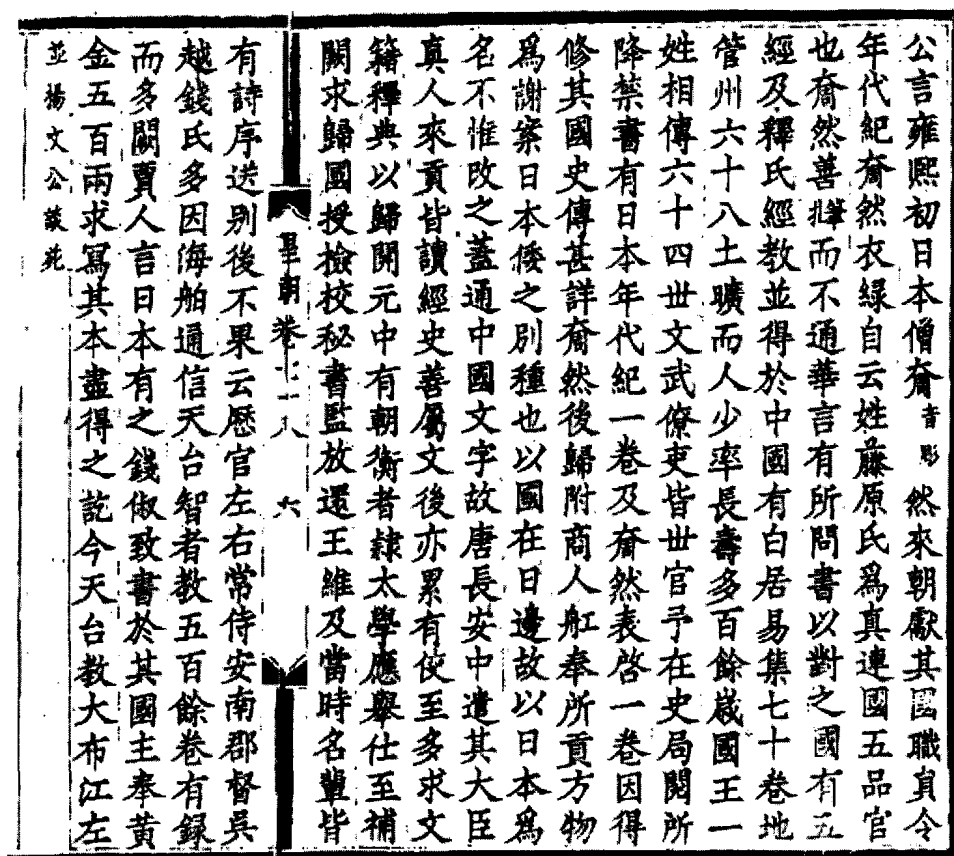 公言雍熙初日本僧奝音彫然來朝獻其國職員令
年代紀奝然衣綠自云姓藤原氏爲真連國五品官
也奝然善筆札而不通華言有所問書以對之國有五
經及釋氏經教並得於中國有白居易集七十卷地
管州六十八土曠而人少率長壽多百餘歲國王一
姓相傳六十四世文武僚吏皆世官予在史局閱所
降禁書有日本年代紀一卷及奝然表啓一卷因得
修其國史傳甚詳奝然後歸附商人舡奉所貢方物
爲謝案日本倭之別種也以國在日邊故以日本爲
名不惟改之蓋通中國文字故唐長安中遣其大臣
真人來貢皆讀經史善屬文後亦累有使至多求文
籍釋典以歸開元中有朝衡者隸太學應舉仕至補
闕求歸國授檢校秘書監放還王維及當時名輩皆
皇朝 卷七十八 六
有詩序送別後不果云歷官左右常侍安南都督吳
越錢氏多因海舶通信天台智者教五百餘卷有録
而多闕賈人言日本有之錢俶致書於其國主奉黃
金五百兩求寫其本盡得之訖今天台教大布江左
並楊文公談苑